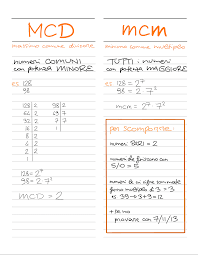 MCD
massimo comune divisore
numeri COMUNI
con potenza MINORE
es 128
98
128 2
64 2
32 2
16 2
8 2
4 2
2 2
1
98 2
49 7
7 7
1
128 = 2⁷
98 = 2 · 7²
MCD = 2
mcm
minimo comune multiplo
TUTTI i numeri
con potenza MAGGIORE
es 128 = 2⁷
98 = 2 · 7²
mcm = 2⁷ · 7²
per scomporre:
numeri PARI = 2
numeri che finiscono con
5/0 = 5
numeri le cui cifre sommate
multiplo di 3 = 3
es 39→3+9=12
+ se no
provare con 7/11/13